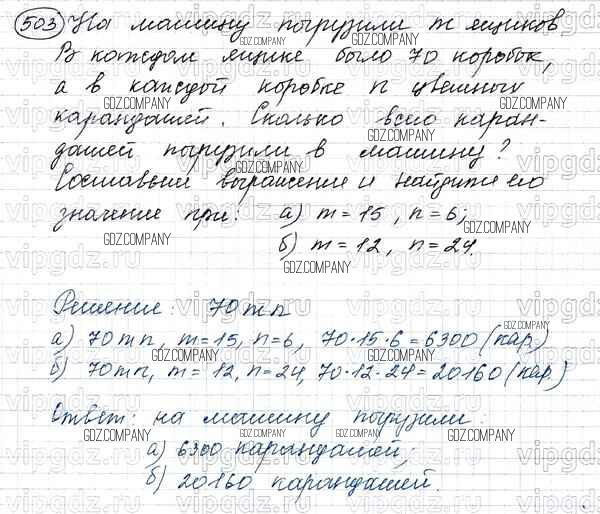 503 На машину погрузили m ящиков.
В каждом ящике было 70 коробок,
а в каждой коробке n цветных
карандашей. Сколько всего каран-
дашей погрузили в машину?
Составьте выражение и найдите его
значение при: а) m = 15, n = 6;
б) m = 12, n = 24.
Решение: 70mn
а) 70mn, m = 15, n = 6, 70·15·6 = 6300 (кар.)
б) 70mn, m = 12, n = 24, 70·12·24 = 20160 (кар.)
Ответ: на машину погрузили:
а) 6300 карандашей;
б) 20160 карандашей.